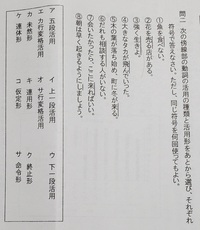 問二 次の傍線部の動詞の活用の種類と活用形をあとから選び、それぞれ
符号で答えなさい。ただし、同じ符号を何回使ってもよい。
①魚を食べない。
②花を売る店がある。
③強く生きよ。
④大きなタカが飛んでいった。
⑤木の葉が落ち始め、町に冬が来る。
⑥だれも相談する人がいない。
⑦会いたかったら、ここに来ればいい。
⑧朝は早く起きるようにしましょう。
ア 五段活用 イ 上一段活用 ウ 下一段活用
エ カ行変格活用 オ サ行変格活用
カ 未然形 キ 連用形 ク 終止形
ケ 連体形 コ 仮定形 サ 命令形